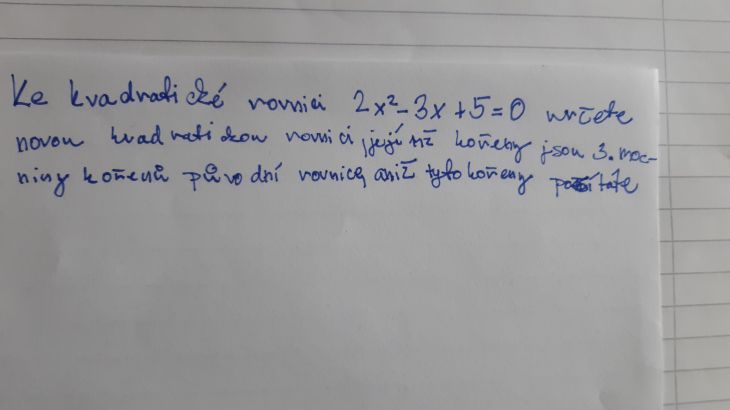 Ke kvadratické rovnici 2x²-3x+5=0 určete
novou kvadratickou rovnici, jejíž kořeny jsou 3. moc-
niny kořenů původní rovnice, aniž tyto kořeny počítáte